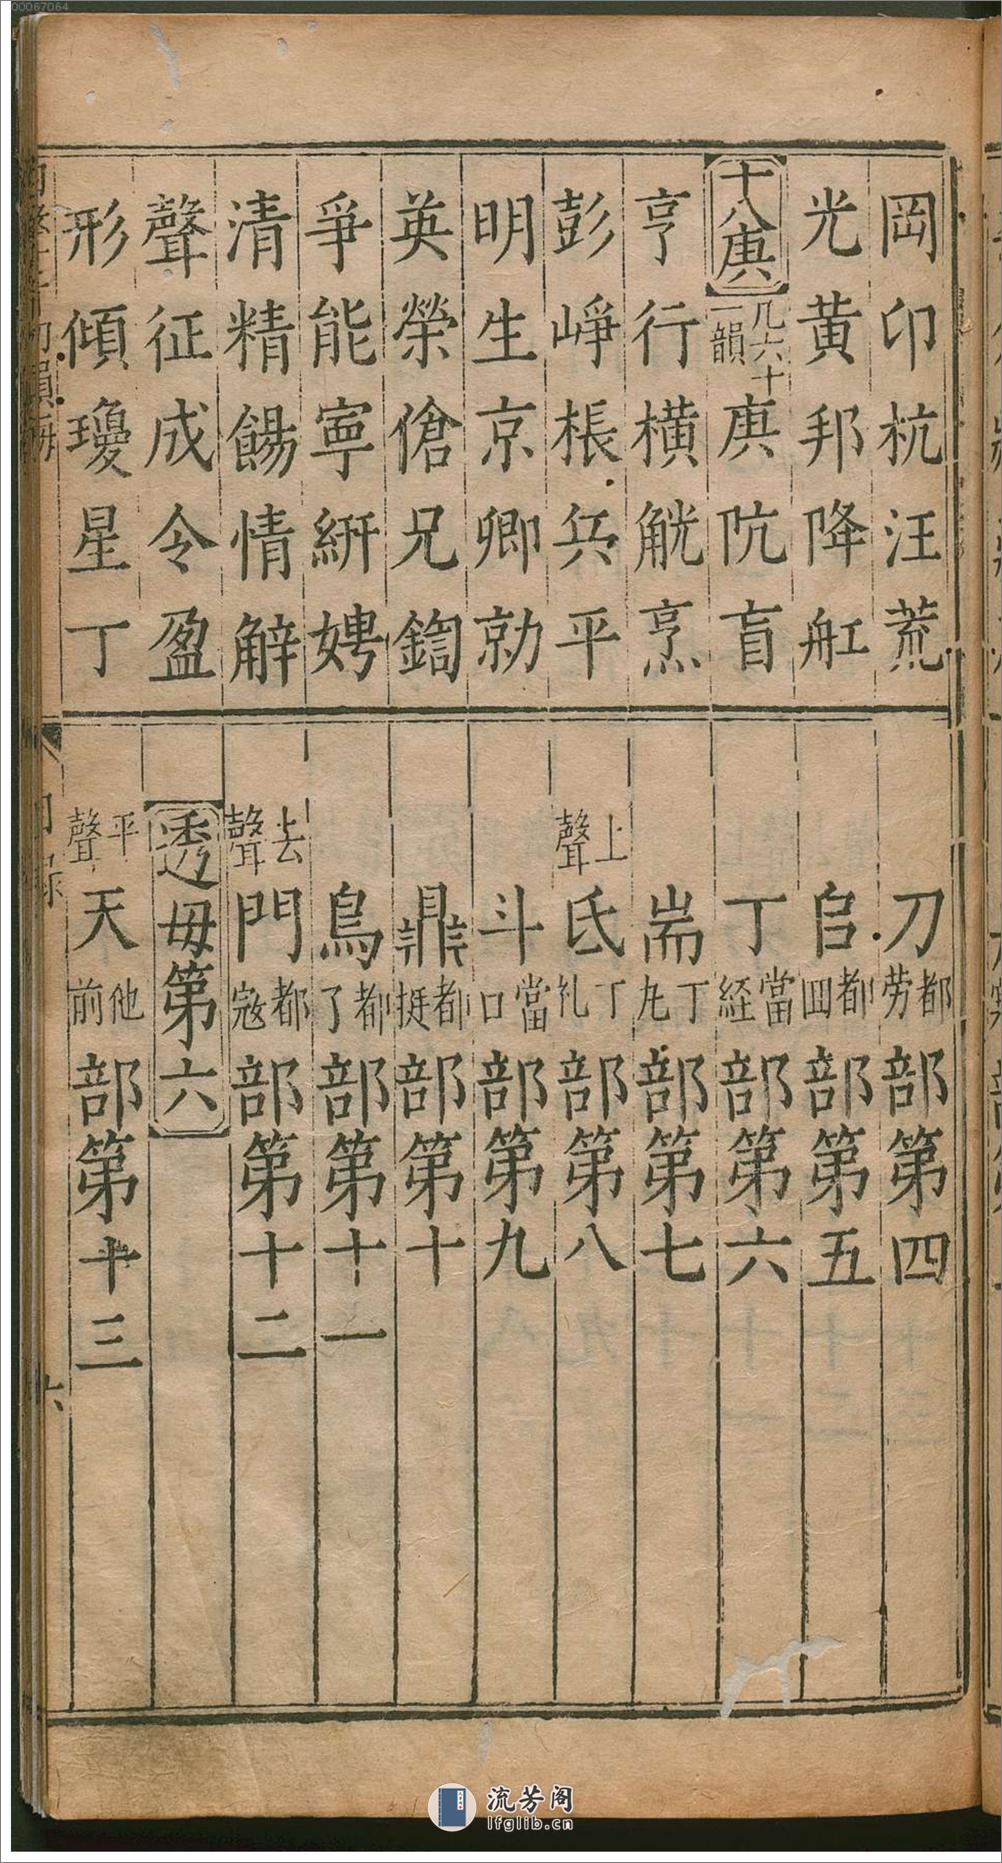 00067064
岡卬杭汪㡃
光黄邦降舡
十八庚
凡六十
一韻
庚阬盲
亨行横觥烹
彭崢棖兵平
明生京卿勍
英榮傖兄鍧
爭能寧絣娉
清精餳情觧
聲征成令盈
形傾瓊星丁
刀
都
勞
部第四
𠂤
都
回
部第五
丁
當
経
部第六
耑
丁
丸
部第七
上
聲
氐
丁
礼
部第八
斗
當
口
部第九
鼎
都
挺
部第十
鳥
都
了
部第十一
去
聲
鬥
都
寇
部第十二
透母第六
平
聲
天
他
前
部第十三
六
流芳阁
lfglib.cn